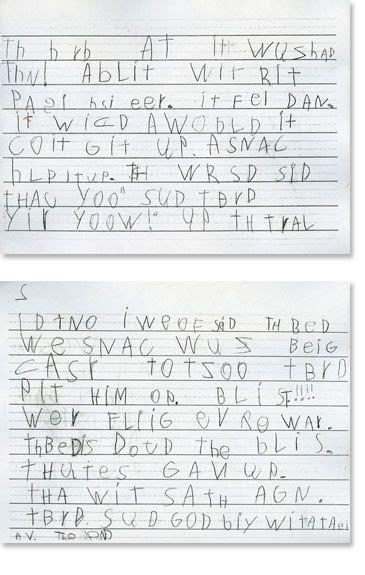 Th hrb AT It WUSHAD
ThN! ABLit Wir Rit
PAST hsi eer. it FEl DAN.
it WicD A WOBLD it
COit Git UP. A SNAC
hLP itUP. tH WRSD SiD
tHAC YOO" SUD tBRD
Yir YOOW!" UP tH tRAL
I DtNO i WEOE SAiD TH BED
We SNAC WUS BEiG
CASr TOtSOO tBRD
Pit HiM ON. BLiSt!!!!
Wer FLiig EVREWAr.
thBeDS DOUD the BLiS.
tHUteS GAV UP.
tHA Wit SAtH AGN.
tBRD. SUD GOD biy Wit A tAei
AV. The END